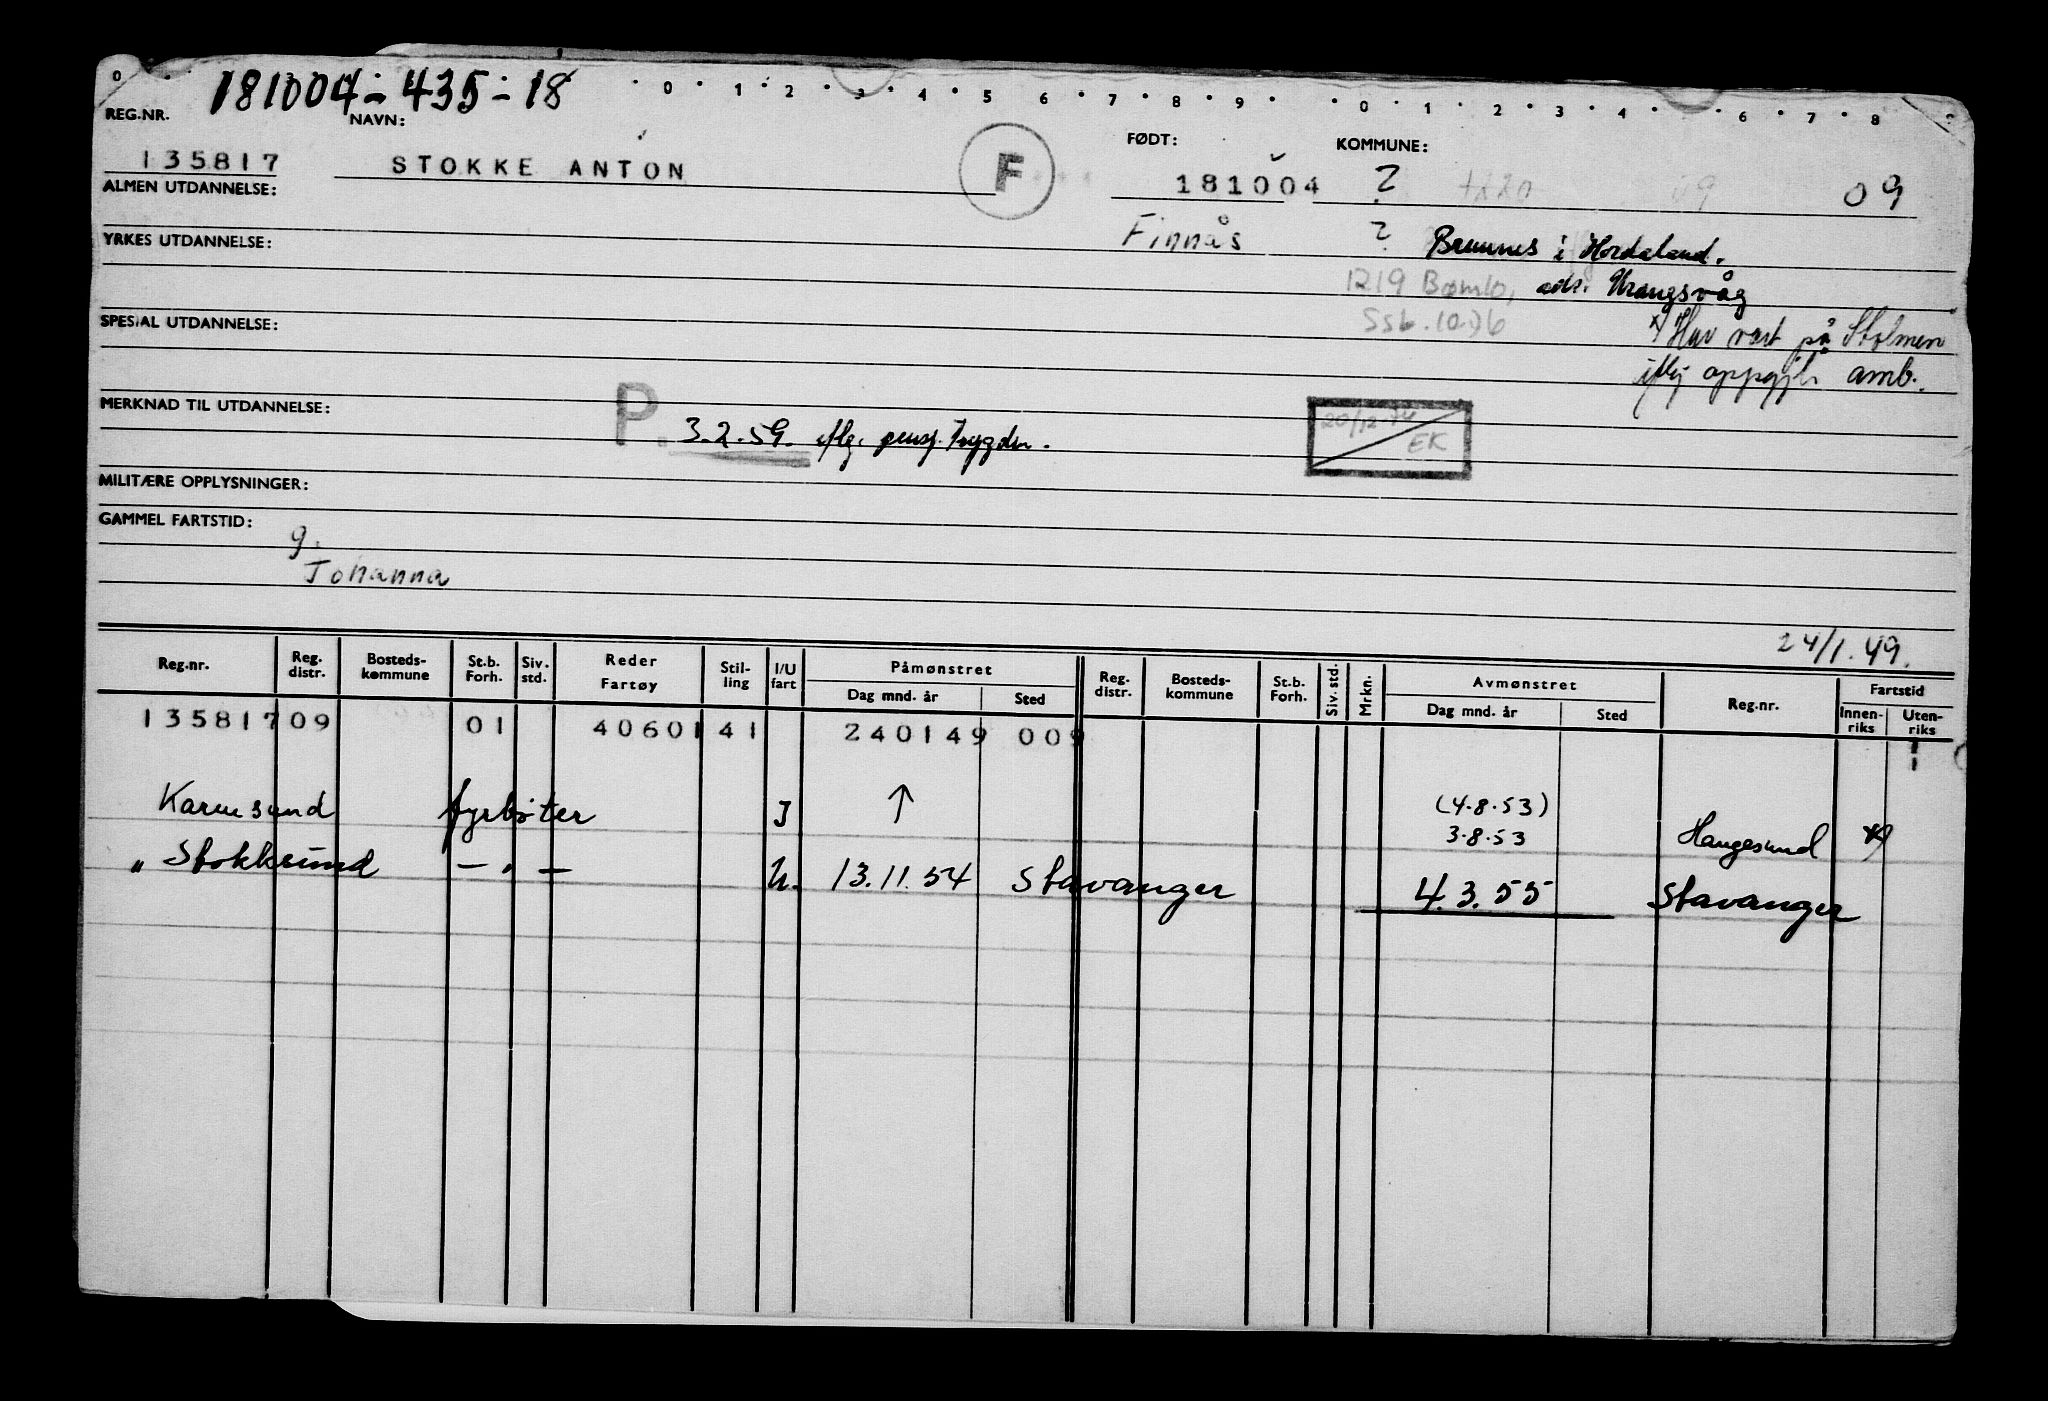 181004-435-18
0 1 2 3 4 5 6 7 8 9 0 1 2 3 4 6 7 8 9
REG.NR. NAVN: FØDT: KOMMUNE:
135817 STOKKE ANTON F 181004 ? 09
ALMEN UTDANNELSE:
Finnås ? Bremnes i Hordaland.
YRKES UTDANNELSE:
1219 Bømlo, adr. Urangsvåg
SPESIAL UTDANNELSE:
x/ Har vært på Stolmen
iflg oppgitt amb.
MERKNAD TIL UTDANNELSE:
P. 3.2.59. iflg. pensj. trygden.
20/12-74
EK
MILITÆRE OPPLYSNINGER:
GAMMEL FARTSTID:
g.
Johanna
24/1.49.
Reg.nr. Reg. distr. Bosteds-kommune St.b. Forh. Siv. std. Reder Fartøy Stil-ling I/U fart Påmønstret Dag mnd. år Sted Reg. distr. Bosteds-kommune St.b. Forh. Siv. std. Mrkn. Avmønstret Dag mnd. år Sted Reg.nr. Fartstid Innen-riks Uten-riks
135817 09 01 40601 41 240149 009
Karmsund fyrbøter I ↑ (4.8.53)
3.8.53 Haugesund x)
" Stokksund — " — U. 13.11.54 Stavanger 4.3.55 Stavanger